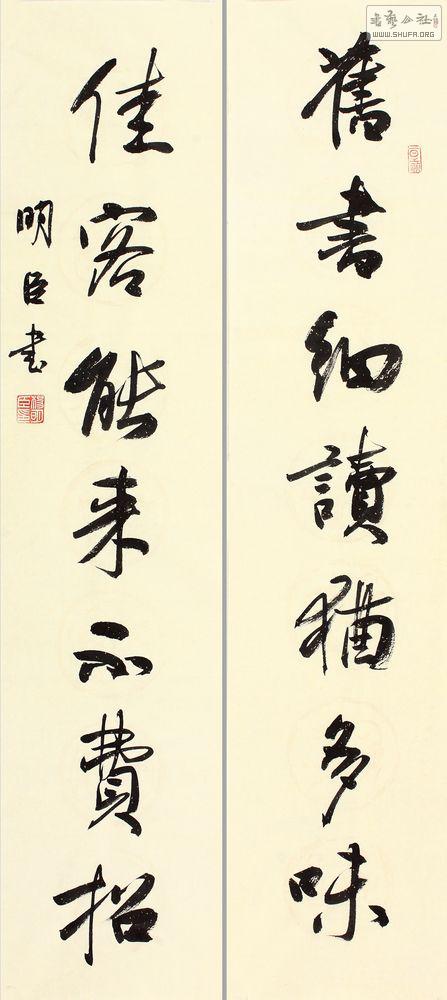 舊書細讀猶多味
佳客能来不費招
明臣書
書藝公社
WWW.SHUFA.ORG